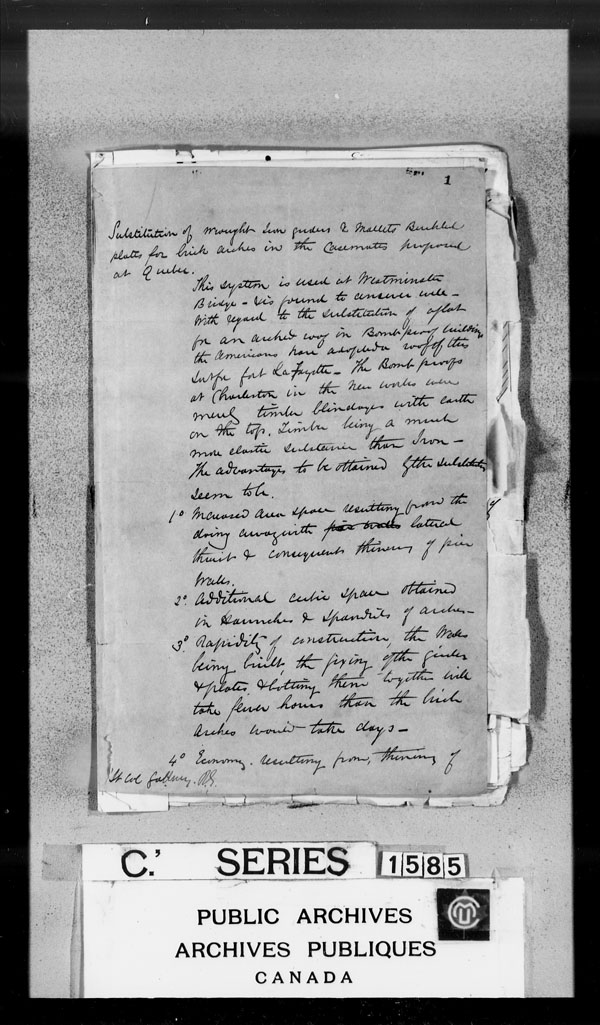 1
Substitution of wrought Iron girders & Mallets Buckled
plates for brick arches in the Casemates proposed
at Quebec.
This system is used at Westminster
Bridge - & is found to answer well -
With regard to the substitution of a flat
for an arched way in Bomb proof buildings
the Americans have adopted a roof of this
for fort La Fayette - The Bomb proofs
at Charleston in the New works were
merely timber blindages with earth
on the top, Timber being a much
more elastic substance than Iron -
The advantages to be obtained by the substitution
seem to be.
1° Increased area space resulting from the
doing away with pier walls lateral
thrust & consequent thinness of pier
Walls.
2° Additional cubic space obtained
in Haunches & Spandrils of arches -
3° Rapidity of construction, the Walls
being built, the fixing of the girders
& plates, & bolting them together will
take fewer hours than the brick
Arches would take days -
4° Economy. resulting from, thinning of
Lt Col Gallwey. R.E.
C.' SERIES 1585
PUBLIC ARCHIVES
ARCHIVES PUBLIQUES
CANADA